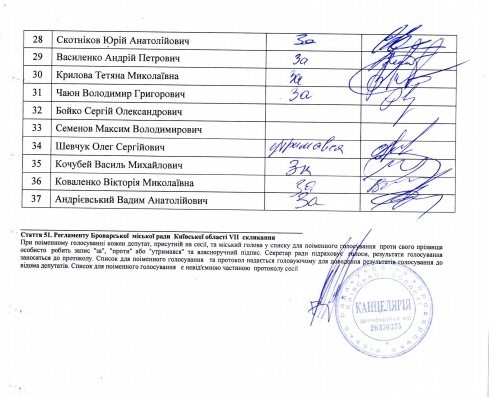 28 Скотніков Юрій Анатолійович За
29 Василенко Андрій Петрович За
30 Крилова Тетяна Миколаївна За
31 Чаюн Володимир Григорович За
32 Бойко Сергій Олександрович
33 Семенов Максим Володимирович
34 Шевчук Олег Сергійович утримався
35 Кочубей Василь Михайлович За
36 Коваленко Вікторія Миколаївна За
37 Андрієвський Вадим Анатолійович За
Стаття 51. Регламенту Броварської міської ради Київської області VII скликання
При поіменному голосуванні кожен депутат, присутній на сесії, та міський голова у списку для поіменного голосування проти свого прізвища
особисто робить запис "за", "проти" або "утримався" та власноручний підпис. Секретар ради підраховує голоси, результати голосування
заносяться до протоколу. Список для поіменного голосування та протокол надається головуючому для доведення результатів голосування до
відома депутатів. Список для поіменного голосування є невід'ємною частиною протоколу сесії
КАНЦЕЛЯРІЯ
26376375